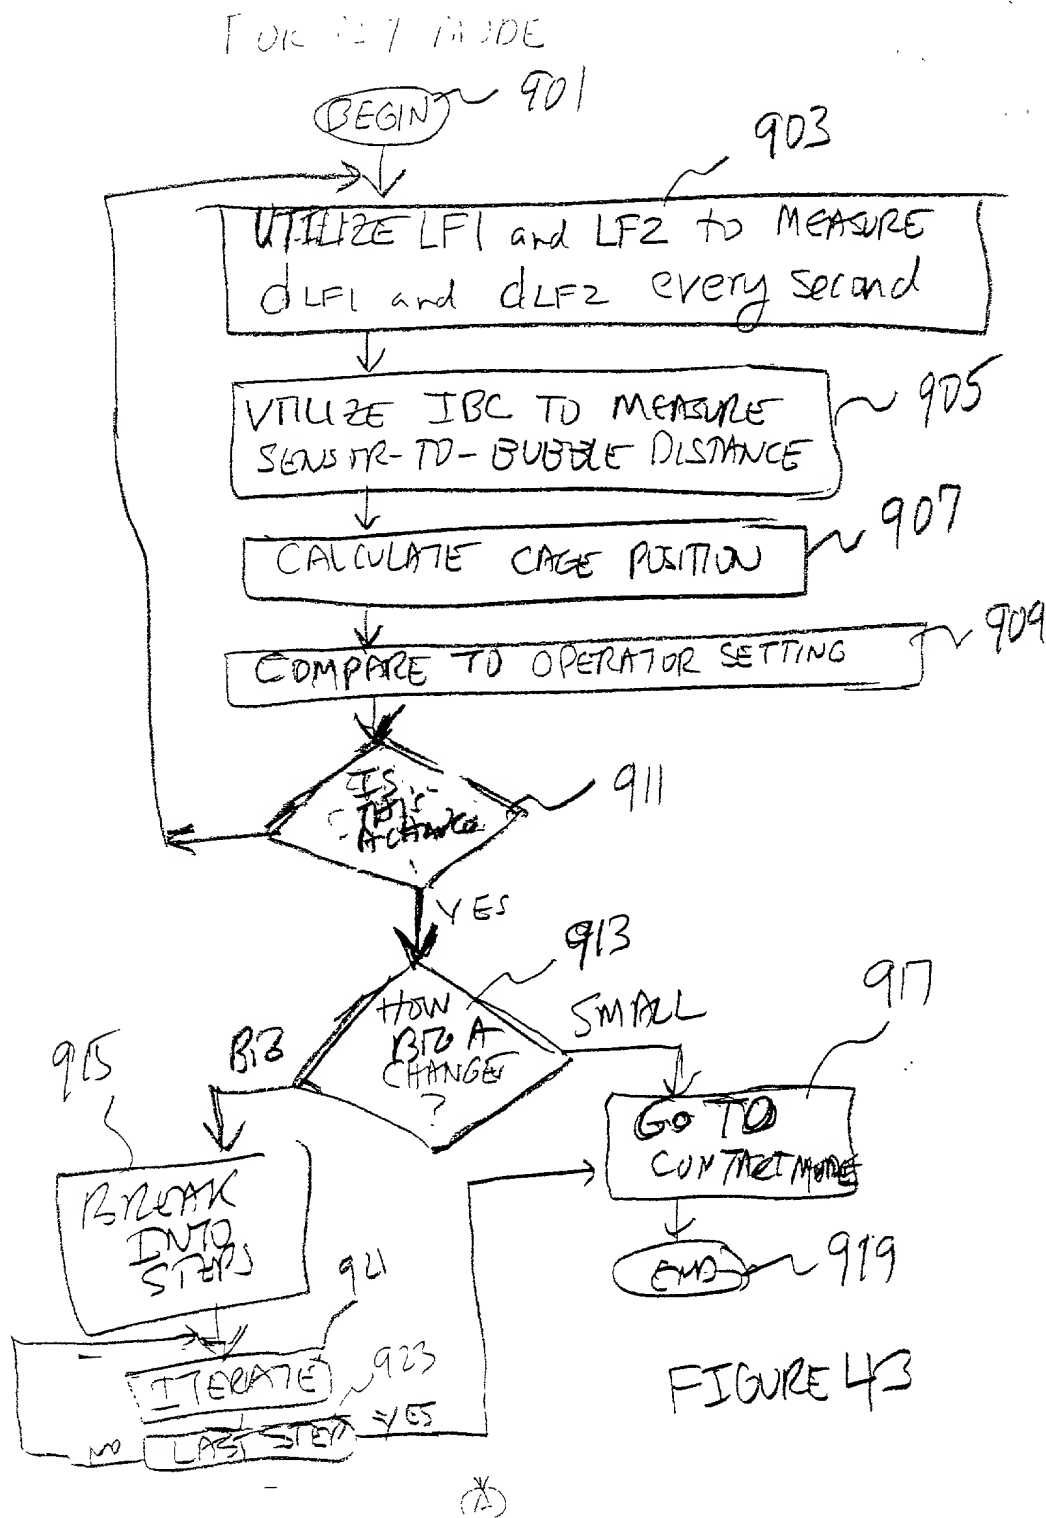 MODE
BEGIN
901
903
UTILIZE LF1 and LF2 to MEASURE
dLF1 and dLF2 every second
UTILIZE IBC TO MEASURE
SENSOR-TO-BUBBLE DISTANCE
905
CALCULATE CAGE POSITION
907
COMPARE TO OPERATOR SETTING
909
IS
THIS
A CHANGE
911
YES
HOW
BIG A
CHANGE
?
913
BIG
SMALL
915
917
BREAK
INTO
STEPS
GO TO
CONTACT MODE
END
919
921
ITERATE
923
LAST STEP
YES
NO
FIGURE 43
A